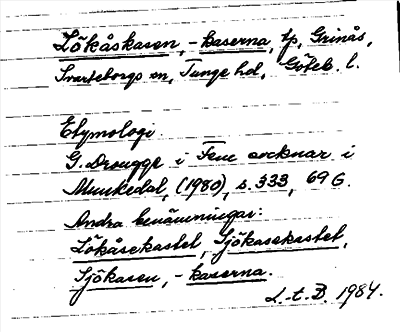 Lökåskasen, -kaserna, tp, Grinås,
Svarteborgs sn, Tunge hd, Göteb. l.
Etymologi
G. Drougge i Fem socknar i
Munkedal, (1980), s. 333, 69 G.
Andra benämningar:
Lökåsekastet, Sjökasekastet,
Sjökasen, -kaserna.
L.-t. B. 1984.